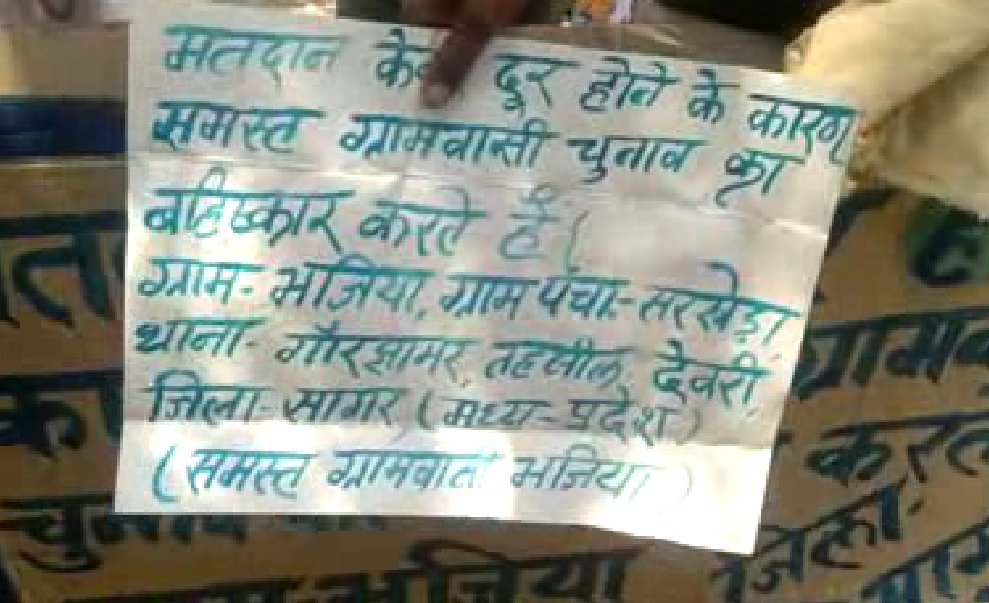 मतदान दूर होने के कारण
समस्त ग्रामवासी चुनाव का
बहिष्कार करते हैं।
ग्राम- भजिया, ग्राम पंचा.- सरखेड़ा
थाना- गौरझामर, तहसील, देवरी,
जिला- सागर, (मध्य-प्रदेश)
(समस्त ग्रामवासी भजिया)
करते
चुनाव
भजिया जिला.